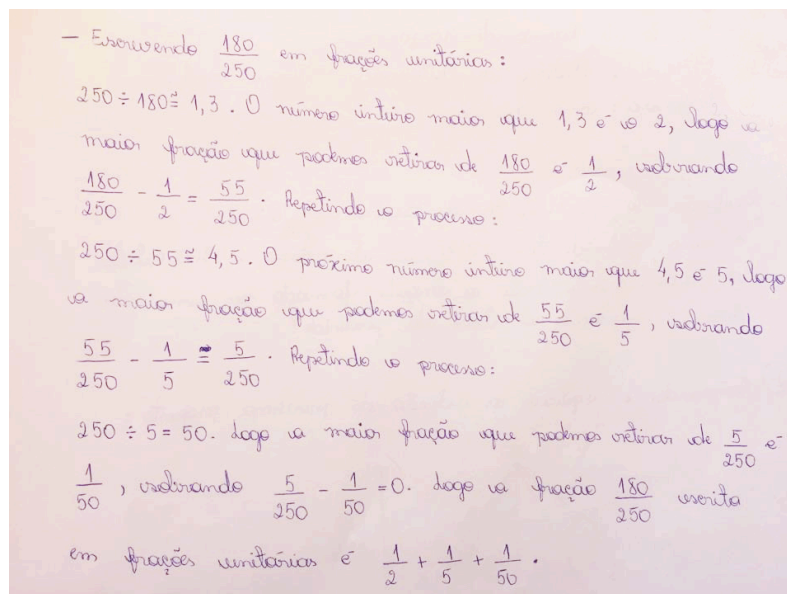 — Escrevendo 180/250 em frações unitárias:
250 ÷ 180 ≅ 1,3. O número inteiro maior que 1,3 é o 2, logo a
maior fração que podemos retirar de 180/250 é 1/2, sobrando
180/250 - 1/2 = 55/250. Repetindo o processo:
250 ÷ 55 ≅ 4,5. O próximo número inteiro maior que 4,5 é 5, logo
a maior fração que podemos retirar de 55/250 é 1/5, sobrando
55/250 - 1/5 = 5/250. Repetindo o processo:
250 ÷ 5 = 50. Logo a maior fração que podemos retirar de 5/250 é
1/50, sobrando 5/250 - 1/50 = 0. Logo a fração 180/250 escrita
em frações unitárias é 1/2 + 1/5 + 1/50.